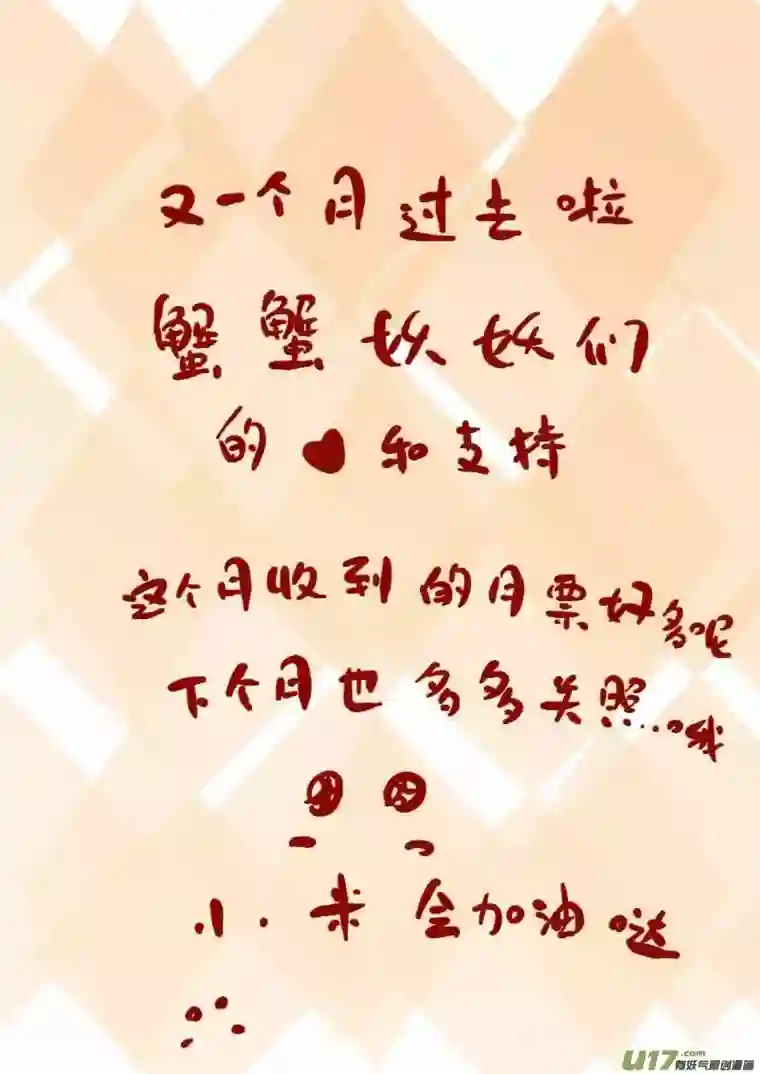 又一个月过去啦
蟹蟹妖妖们
的❤和支持
这个月收到的月票好多呢
下个月也多多关照..哦
小米会加油哒
U17.com
有妖气原创漫画